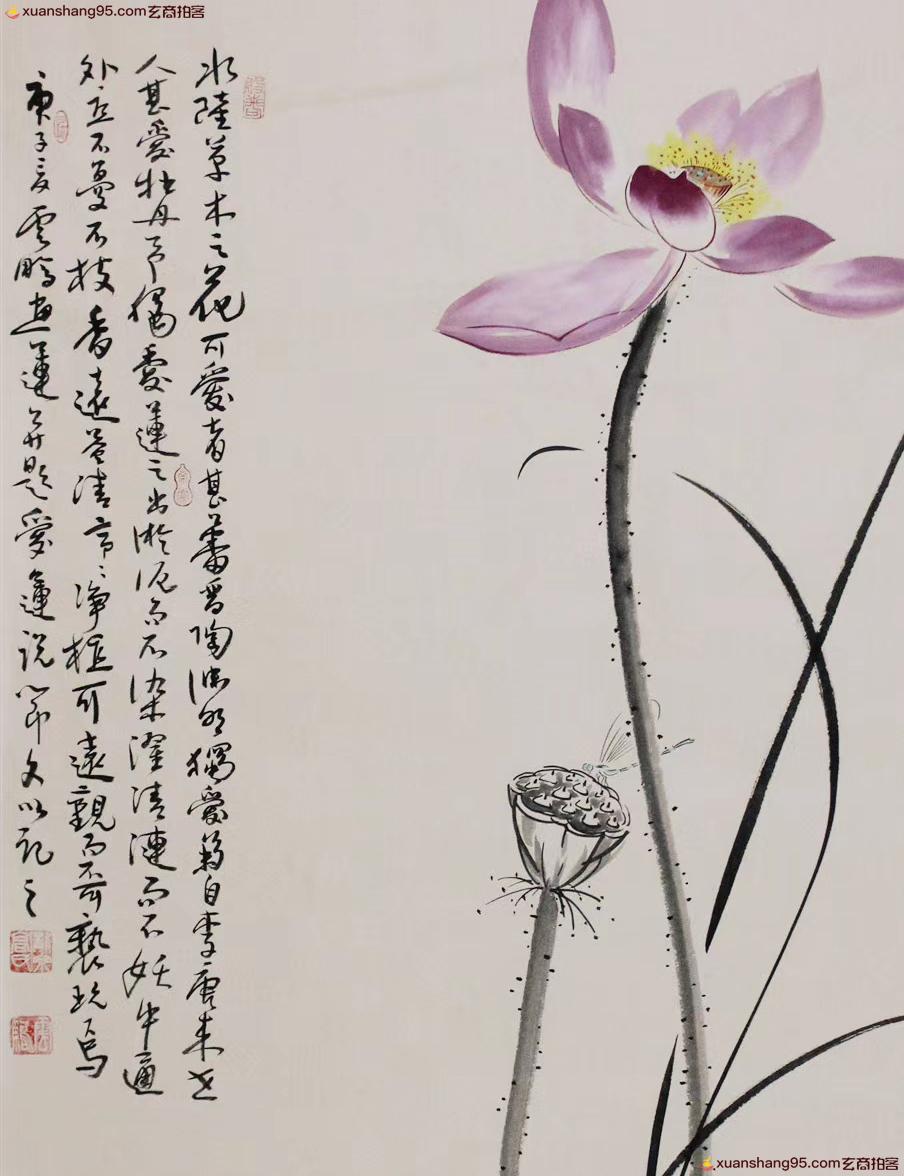 xuanshang95.com玄商拍客
水陸草木之花可愛者甚蕃晉陶渊明獨愛菊自李唐来世
人甚愛牡丹予獨愛蓮之出淤泥而不染濯清漣而不妖中通
外直不蔓不枝香遠益清亭〻净植可遠觀而不可褻玩焉
庚子夏雲鵬画蓮并題愛蓮说節文以記之
xuanshang95.com玄商拍客